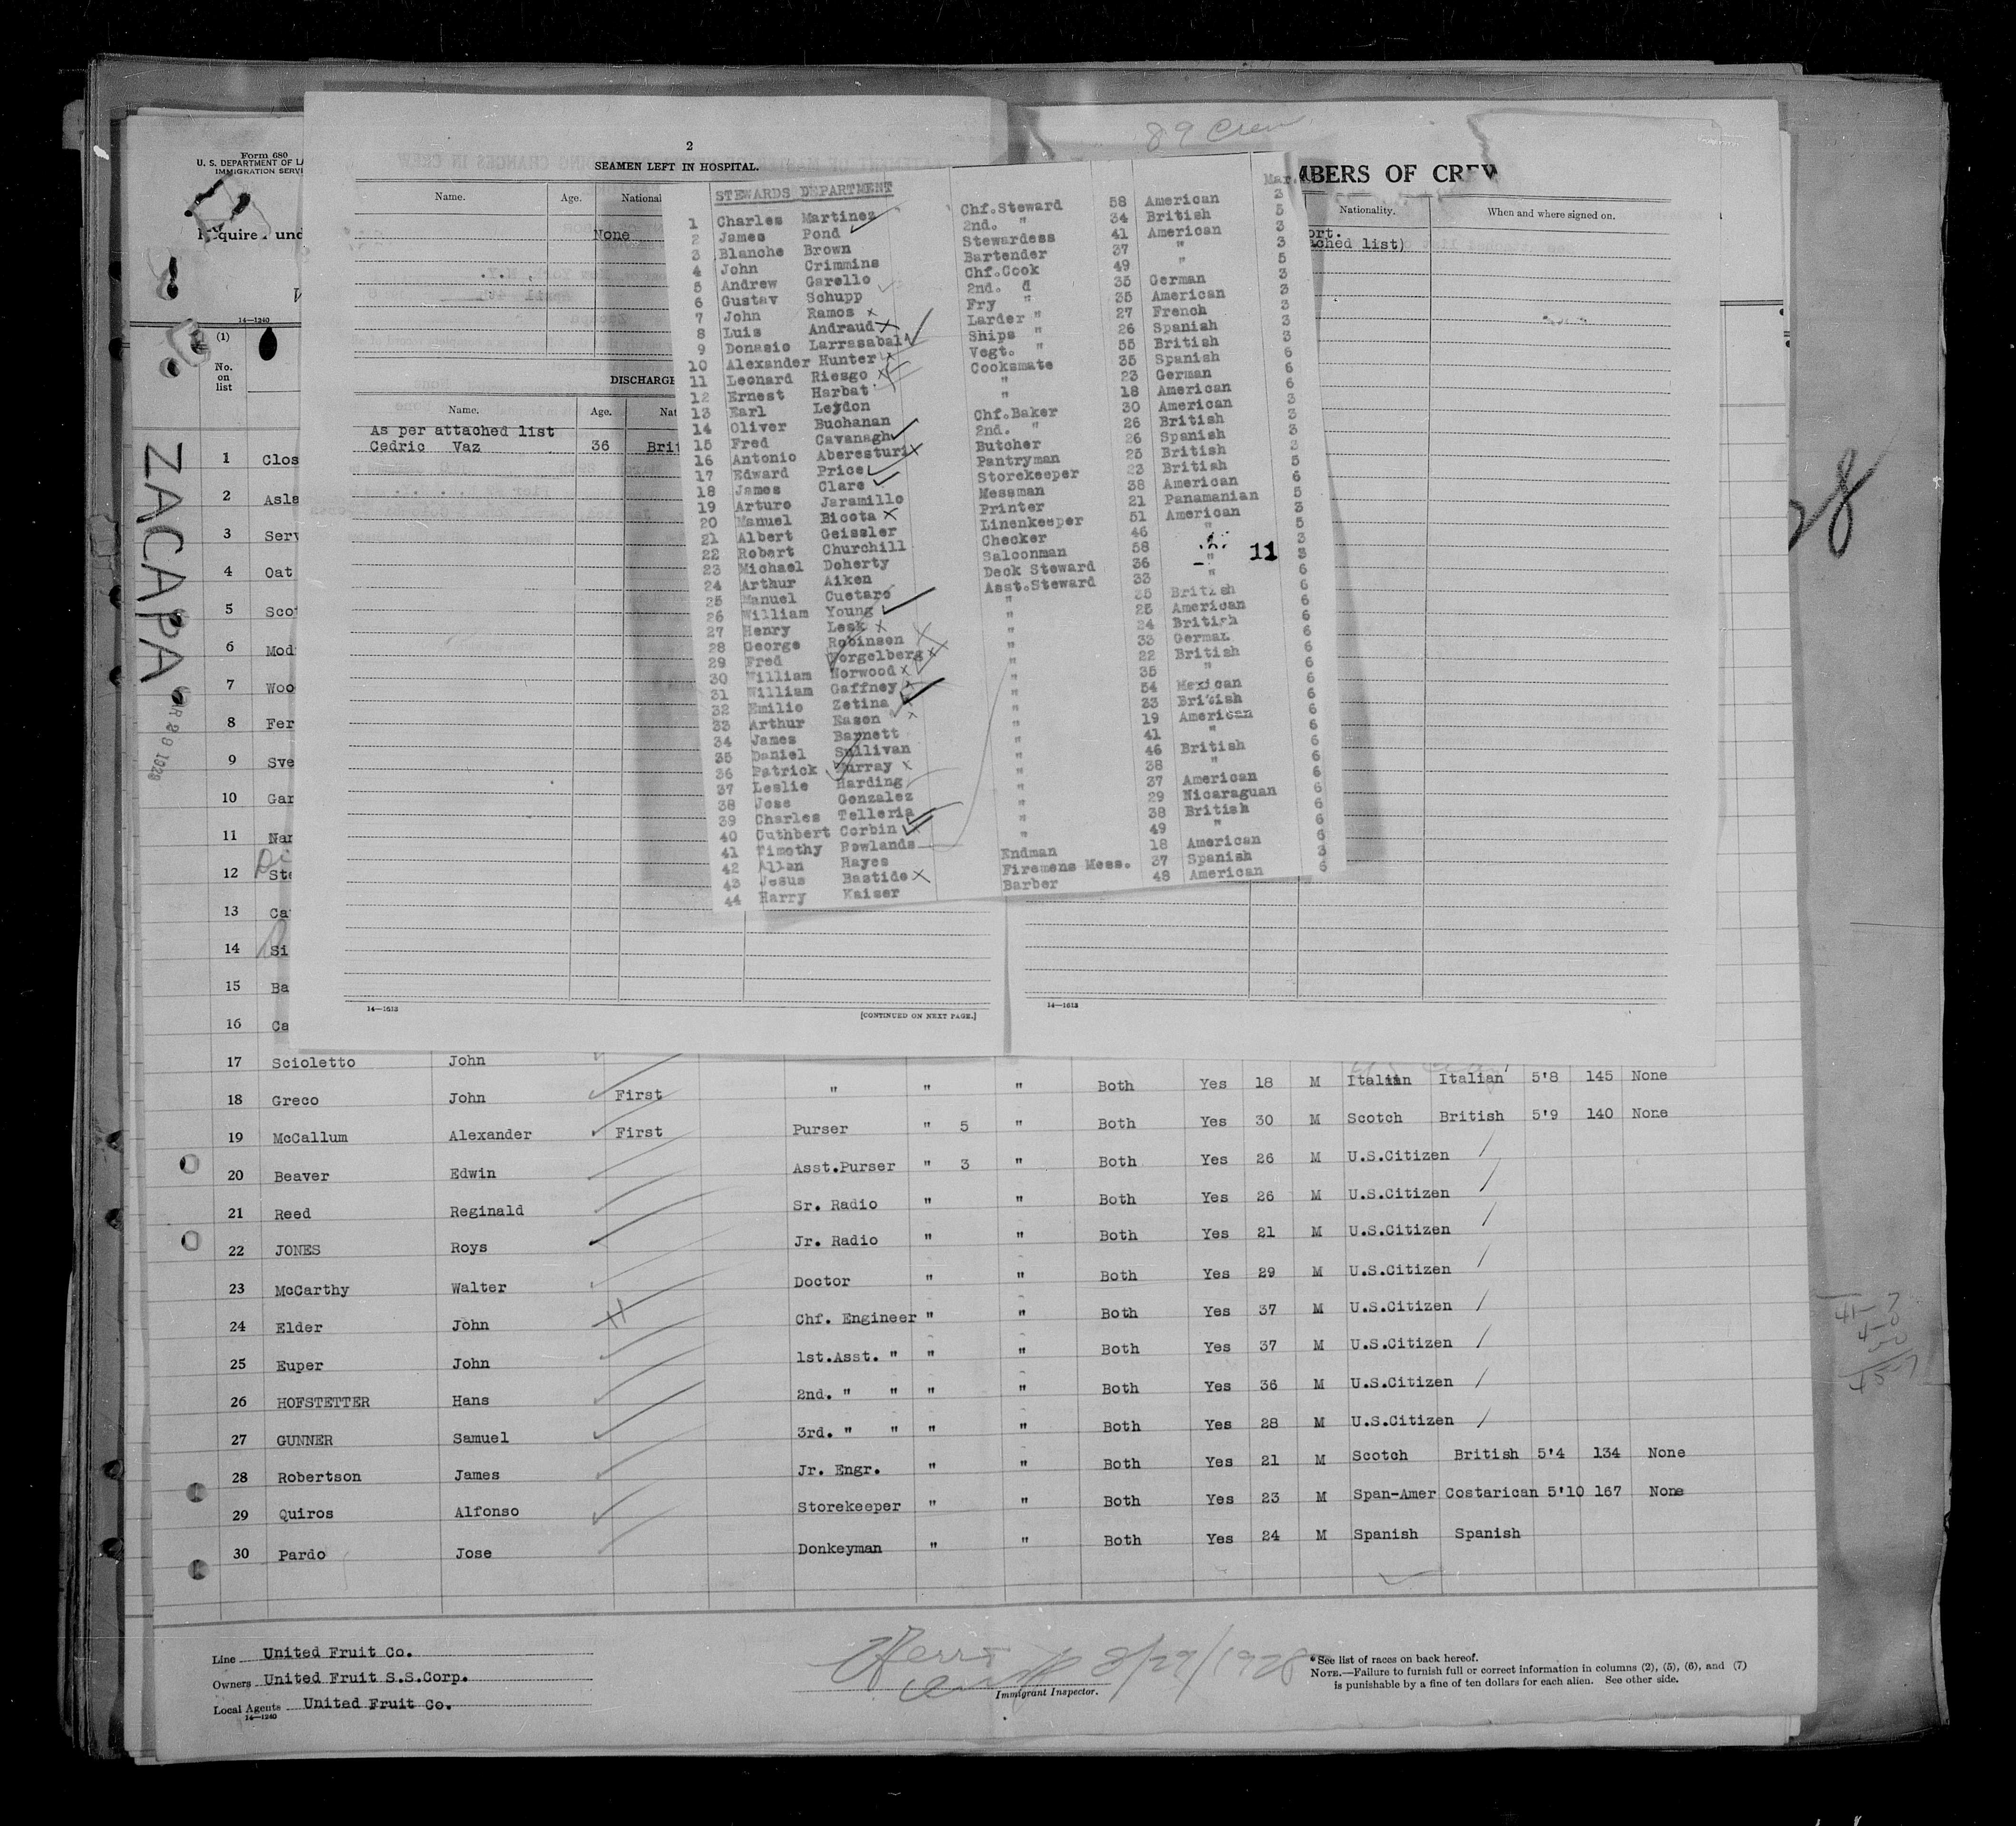 89 Crew
Form 680
U. S. DEPARTMENT OF LA
IMMIGRATION SERVI
Require und
14—1240
(1)
No. on list
ZACAPA
MAR 28 1928
2
SEAMEN LEFT IN HOSPITAL.
Name. Age. National
None
DISCHARGE
Name. Age. Nat
As per attached list
Cedric Vaz 36 Brit
14—1613
[CONTINUED ON NEXT PAGE.]
MBERS OF CREW
Nationality. When and where signed on.
ort.
ached list)
14—1613
STEWARDS DEPARTMENT Mar.
1 Charles Martinez Chf.Steward 58 American 3
2 James Pond 2nd. " 34 British 5
3 Blanche Brown Stewardess 41 American 3
4 John Crimmins Bartender 37 " 3
5 Andrew Garello Chf.Cook 49 " 5
6 Gustav Schupp 2nd. 35 German 3
7 John Ramos Fry " 35 American 3
8 Luis Andraud Larder " 27 French 3
9 Donasio Larrasabal Ships " 26 Spanish 3
10 Alexander Hunter Vegt. " 55 British 3
11 Leonard Riesgo Cooksmate 35 Spanish 6
12 Ernest Harbat " 23 German 6
13 Earl Leydon " 18 American 6
14 Oliver Buchanan Chf.Baker 30 American 3
15 Fred Cavanagh 2nd. " 26 British 3
16 Antonio Aberesturi Butcher 26 Spanish 3
17 Edward Price Pantryman 25 British 3
18 James Clare Storekeeper 23 British 5
19 Arturo Jaramillo Messman 38 American 6
20 Manuel Bicota Printer 21 Panamanian 5
21 Albert Geissler Linenkeeper 51 American 3
22 Robert Churchill Checker 46 " 5
23 Michael Doherty Saloonman 58 " 3
24 Arthur Aiken Deck Steward 36 " 11 3
25 Manuel Cuetaro Asst.Steward 33 " 6
26 William Young " 25 British 6
27 Henry Lesk " 25 American 6
28 George Robinson " 24 British 6
29 Fred Vorgelberg " 33 German 6
30 William Norwood " 22 British 6
31 William Gaffney " 35 " 6
32 Emilio Zetina " 54 Mexican 6
33 Arthur Eason " 33 British 6
34 James Barnett " 19 American 6
35 Daniel Sullivan " 41 " 6
36 Patrick Murray " 46 British 6
37 Leslie Harding " 38 " 6
38 Jose Gonzalez " 37 American 6
39 Charles Telleria " 29 Nicaraguan 6
40 Cuthbert Corbin " 38 British 6
41 Timothy Rowlands " 49 " 6
42 Allen Hayes Endman 18 American 6
43 Jesus Bastide Firemens Mess. 37 Spanish 3
44 Harry Kaiser Barber 48 American 6
1 Clos
2 Asla
3 Serv
4 Oat
5 Scot
6 Mod
7 Woo
8 Fer
9 Sve
10 Gar
11 Nar
12 Ste
13 Ca
14 Si
15 Ba
16 Ca
17 Scioletto John
18 Greco John First " " " Both Yes 18 M Italian Italian 5'8 145 None
19 McCallum Alexander First Purser " 5 " Both Yes 30 M Scotch British 5'9 140 None
20 Beaver Edwin Asst.Purser " 3 " Both Yes 26 M U.S.Citizen
21 Reed Reginald Sr. Radio " " Both Yes 26 M U.S.Citizen
22 JONES Roys Jr. Radio " " Both Yes 21 M U.S.Citizen
23 McCarthy Walter Doctor " " Both Yes 29 M U.S.Citizen
24 Elder John Chf. Engineer " " Both Yes 37 M U.S.Citizen
25 Euper John 1st.Asst. " " " Both Yes 37 M U.S.Citizen
26 HOFSTETTER Hans 2nd. " " " " Both Yes 36 M U.S.Citizen
27 GUNNER Samuel 3rd. " " " " Both Yes 28 M U.S.Citizen
28 Robertson James Jr. Engr. " " Both Yes 21 M Scotch British 5'4 134 None
29 Quiros Alfonso Storekeeper " " Both Yes 23 M Span-Amer Costarican 5'10 167 None
30 Pardo Jose Donkeyman " " Both Yes 24 M Spanish Spanish
Line United Fruit Co.
Owners United Fruit S.S.Corp.
Local Agents United Fruit Co.
14—1240
Immigrant Inspector.
*See list of races on back hereof.
NOTE.—Failure to furnish full or correct information in columns (2), (5), (6), and (7)
is punishable by a fine of ten dollars for each alien. See other side.